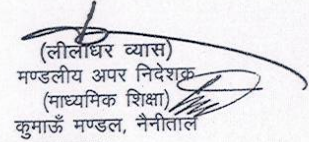 (लीलाधर व्यास)
मण्डलीय अपर निदेशक
(माध्यमिक शिक्षा)
कुमाऊँ मण्डल, नैनीताल